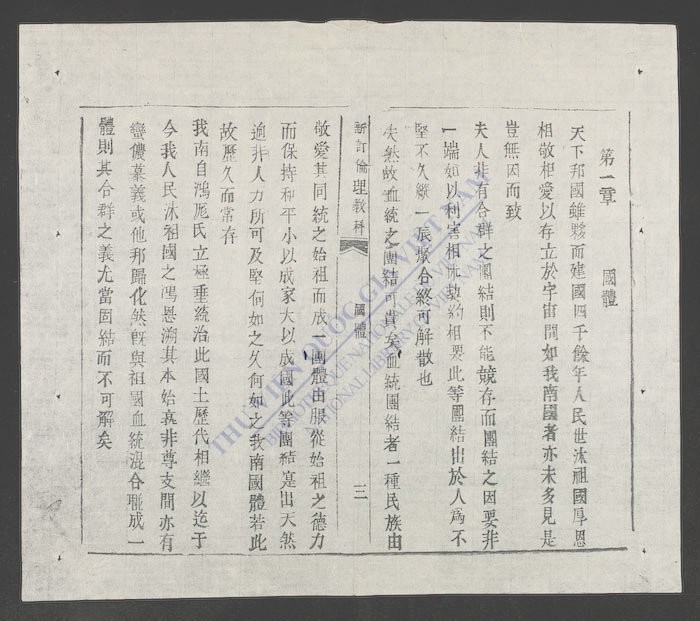 第一章 國體
天下邦國雖夥而建國四千餘年人民世沐祖國厚恩
相敬相愛以存立於宇宙間如我南國者亦未多見是
豈無因而致
夫人非有合群之團結則不能競存而團結之因要非
一端如以利害相 契約相要此等團結出於人爲不
堅不久縱一辰 合終可解散也
失然故血統之團結可貴矣血統團結者一種民族由
新訂倫理教科 國體 三
敬愛其同統之始祖而成一團體由服從始祖之德力
而保持和平小以成家大以成國此等團結寔出天然
迥非人力所可及堅何如之久何如之我南國體若此
故歷久而常存
我南自鴻厖氏立極垂統治此國土歷代相繼以迄于
今我人民沐祖國之鴻恩溯其本始孰非尊支間亦有
蠻儂慕義或他邦歸化然旣與祖國血統混合聯成一
體則其合群之義尤當固結而不可解矣
THƯ VIỆN QUỐC GIA VIỆT NAM
BIBLIOTHEQUE NATIONALE DU VIETNAM
NATIONAL LIBRARY OF VIETNAM